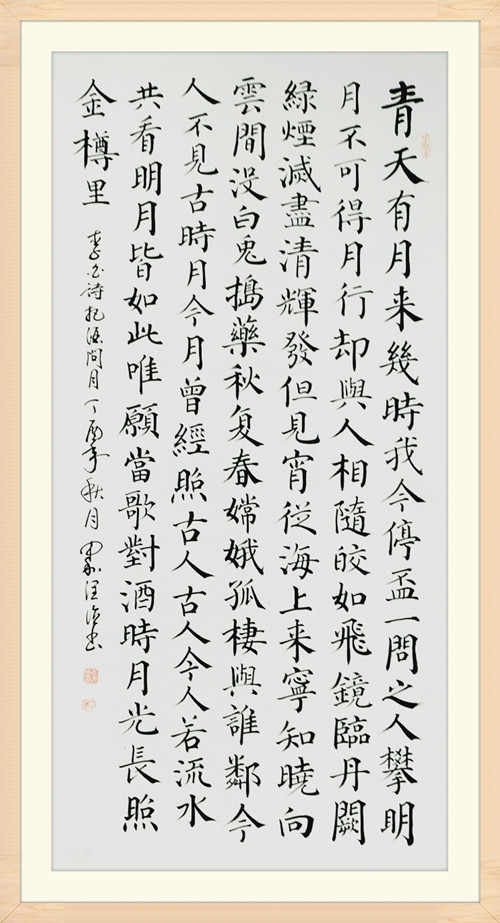 青天有月来幾時我今停盃一問之人攀明
月不可得月行却與人相隨皎如飛鏡臨丹闕
緑煙滅盡清輝發但見宵從海上来寧知曉向
雲間没白兔搗藥秋复春嫦娥孤棲與誰鄰今
人不見古時月今月曾經照古人古人今人若流水
共看明月皆如此唯願當歌對酒時月光長照
金樽里
李白诗把酒問月丁酉年秋月